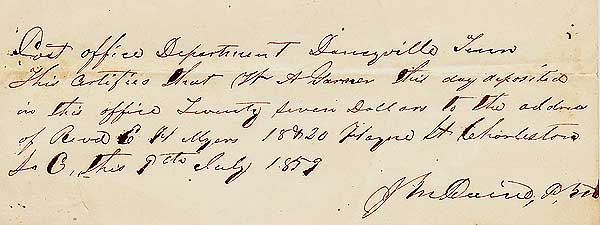 Post office Department Danceyville Tenn
This Certifies that W A Garner this day deposited
in this office Twenty seven Dollars to the address
of Revd E H Myers 18 & 20 Hayne St Charleston
So C, this 9th July 1859
J M P, M